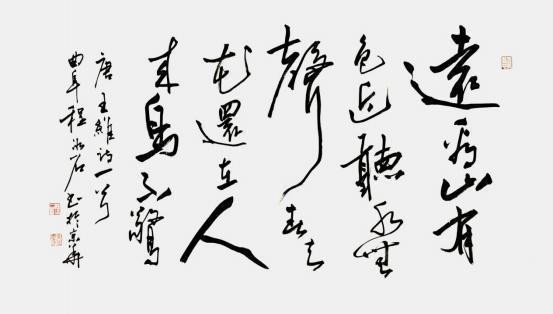 遠看山有
色近聽水無
聲春去
花還在人
来鳥不驚
唐王維诗一首
曲阜程冰石书於京华